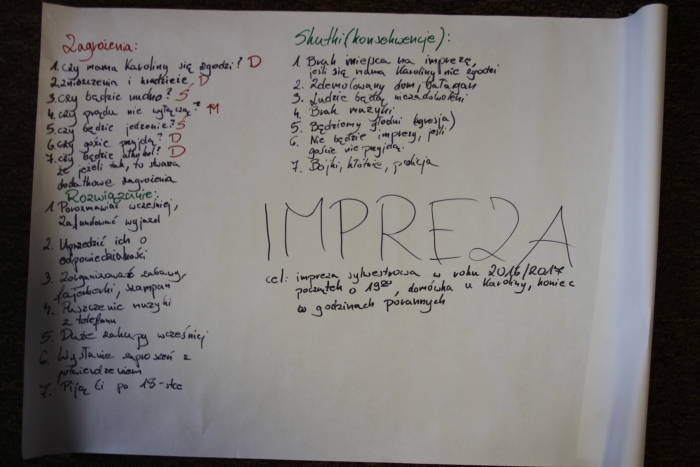 Zagrożenia:
1. Czy mama Karoliny się zgodzi? D
2. zniszczenia i kradzieże D
3. czy będzie nudno? S
4. czy prądu nie wyłączą? M
5. czy będzie jedzenie? S
6. czy goście przyjdą? D
7. czy będzie alkohol? D
że jeżeli tak, to stwarza
dodatkowe zagrożenia
Rozwiązanie:
1. Porozmawiać wcześniej,
zafundować wyjazd
2. Uprzedzić ich o
odpowiedzialności
3. Zorganizować zabawy,
fajerwerki, szampan
4. Puszczenie muzyki
z telefonu
5. Duże zakupy wcześniej
6. Wysłanie zaproszeń z
potwierdzeniem
7. Piją Ci po 18-stce
Skutki (konsekwencje):
1. Brak miejsca na imprezę,
jeśli się mama Karoliny nie zgodzi
2. Zdemolowany dom, bałagan
3. Ludzie będą niezadowoleni
4. Brak muzyki
5. Będziemy głodni (agresja)
6. Nie będzie imprezy, jeśli
goście nie przyjdą.
7. Bójki, kłótnie, policja
IMPREZA
cel: impreza sylwestrowa w roku 2016/2017
początek o 19⁰⁰, domówka u Karoliny, koniec
w godzinach porannych